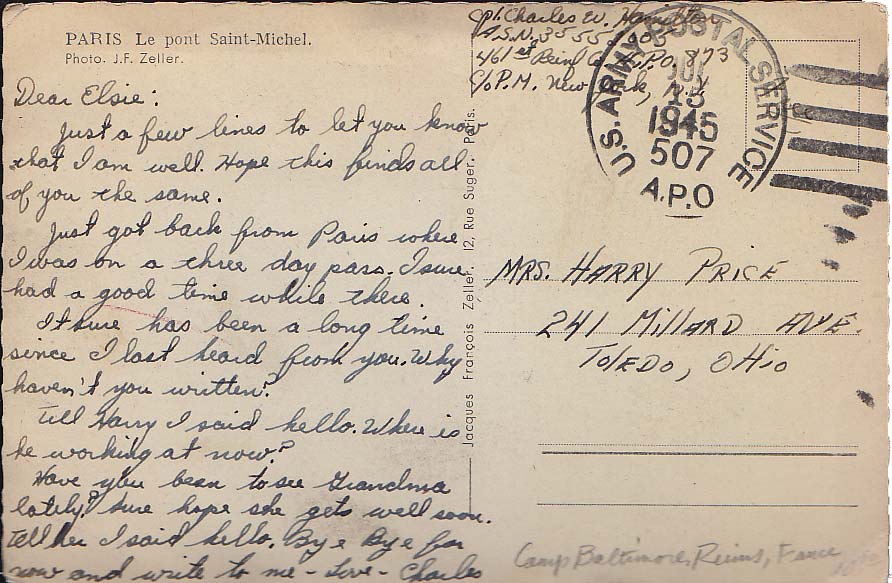 PARIS Le pont Saint-Michel.
Photo. J.F. Zeller.
Dear Elsie:
Just a few lines to let you know
that I am well. Hope this finds all
of you the same.
Just got back from Paris where
I was on a three day pass. I sure
had a good time while there.
It sure has been a long time
since I last heard from you. Why
haven't you written?
Tell Harry I said hello. Where is
he working at now?
Have you been to see Grandma
lately? Sure hope she gets well soon.
Tell her I said hello. Bye Bye for
now and write to me - Love - Charles
Jacques François Zeller. 12, Rue Suger. Paris.
Charles W. Hamilton
A.S.N. 3555
461st Reinf A.P.O. 873
C/o P.M. New York, N.Y.
U.S. ARMY POSTAL SERVICE
JUL
13
1945
507
A.P.O
MRS. HARRY PRICE
241 MILLARD AVE.
TOLEDO, OHIO
Camp Baltimore, Reims, France